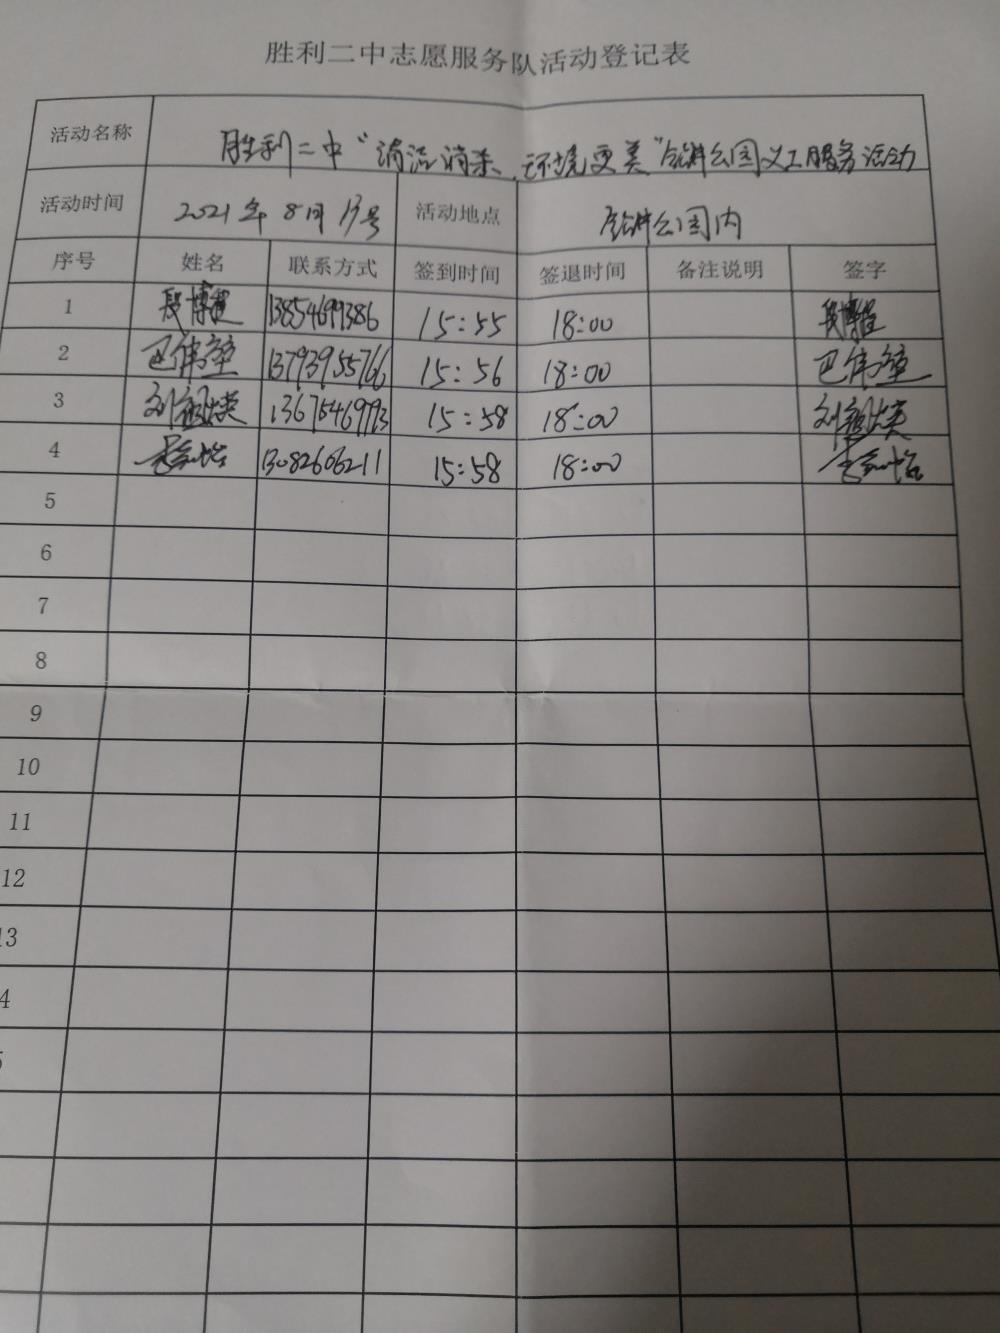 胜利二中志愿服务队活动登记表
活动名称 胜利二中“清洁消杀、环境更美”公园义工服务活动
活动时间 2021年8月13号 活动地点 公园内
序号 姓名 联系方式 签到时间 签退时间 备注说明 签字
1 段博程 13854699386 15:55 18:00 段博程
2 巴 13793955766 15:56 18:00 巴
3 刘 13675469793 15:58 18:00 刘
4 13082606211 15:58 18:00
5
6
7
8
9
10
11
12
13
4
5